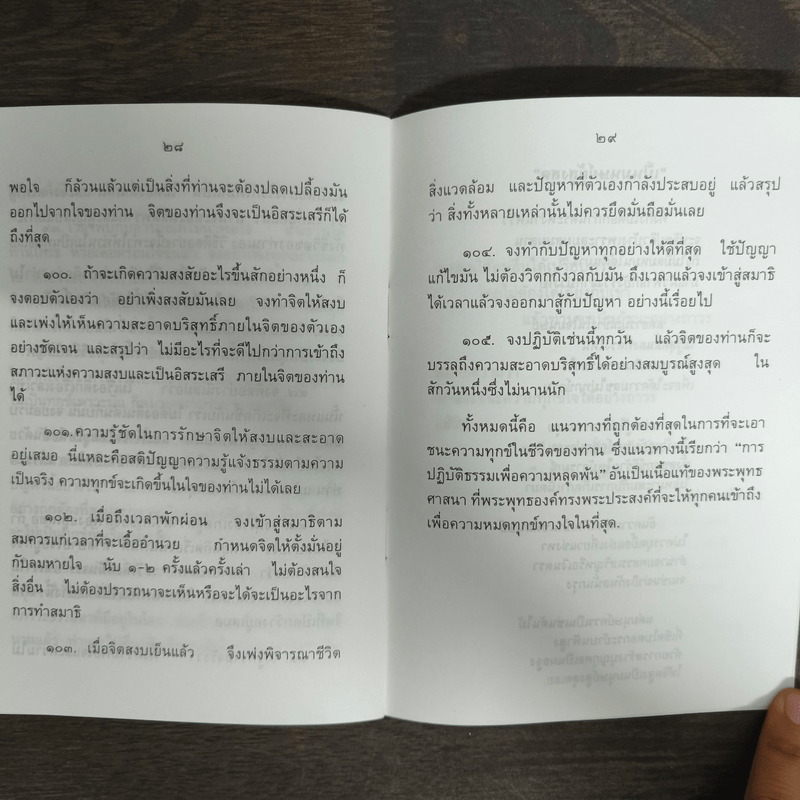 ๒๘
พอใจ ก็ล้วนแล้วแต่เป็นสิ่งที่ท่านจะต้องปลดเปลื้องมัน
ออกไปจากใจของท่าน จิตของท่านจึงจะเป็นอิสระเสรีก็ได้
ถึงที่สุด
๑๐๐. ถ้าจะเกิดความสงสัยอะไรขึ้นสักอย่างหนึ่ง ก็
จงตอบตัวเองว่า อย่าเพิ่งสงสัยมันเลย จงทำจิตให้สงบ
และเพ่งให้เห็นความสะอาดบริสุทธิ์ภายในจิตของตัวเอง
อย่างชัดเจน และสรุปว่า ไม่มีอะไรที่จะดีไปกว่าการเข้าถึง
สภาวะแห่งความสงบและเป็นอิสระเสรี ภายในจิตของท่าน
ได้
๑๐๑.ความรู้ชัดในการรักษาจิตให้สงบและสะอาด
อยู่เสมอ นี่แหละคือสติปัญญาความรู้แจ้งธรรมตามความ
เป็นจริง ความทุกข์จะเกิดขึ้นในใจของท่านไม่ได้เลย
๑๐๒. เมื่อถึงเวลาพักผ่อน จงเข้าสู่สมาธิตาม
สมควรแก่เวลาที่จะเอื้ออำนวย กำหนดจิตให้ตั้งมั่นอยู่
กับลมหายใจ นับ ๑-๒ ครั้งแล้วครั้งเล่า ไม่ต้องสนใจ
สิ่งอื่น ไม่ต้องปรารถนาจะเห็นหรือจะได้จะเป็นอะไรจาก
การทำสมาธิ
๑๐๓. เมื่อจิตสงบเย็นแล้ว จึงเพ่งพิจารณาชีวิต
๒๙
สิ่งแวดล้อม และปัญหาที่ตัวเองกำลังประสบอยู่ แล้วสรุป
ว่า สิ่งทั้งหลายเหล่านั้นไม่ควรยึดมั่นถือมั่นเลย
๑๐๔. จงทำกับปัญหาทุกอย่างให้ดีที่สุด ใช้ปัญญา
แก้ไขมัน ไม่ต้องวิตกกังวลกับมัน ถึงเวลาแล้วจงเข้าสู่สมาธิ
ได้เวลาแล้วจงออกมาสู้กับปัญหา อย่างนี้เรื่อยไป
๑๐๕. จงปฏิบัติเช่นนี้ทุกวัน แล้วจิตของท่านก็จะ
บรรลุถึงความสะอาดบริสุทธิ์ได้อย่างสมบูรณ์สูงสุด ใน
สักวันหนึ่งซึ่งไม่นานนัก
ทั้งหมดนี้คือ แนวทางที่ถูกต้องที่สุดในการที่จะเอา
ชนะความทุกข์ในชีวิตของท่าน ซึ่งแนวทางนี้เรียกว่า “การ
ปฏิบัติธรรมเพื่อความหลุดพ้น” อันเป็นเนื้อแท้ของพระพุทธ
ศาสนา ที่พระพุทธองค์ทรงพระประสงค์ที่จะให้ทุกคนเข้าถึง
เพื่อความหมดทุกข์ทางใจในที่สุด.